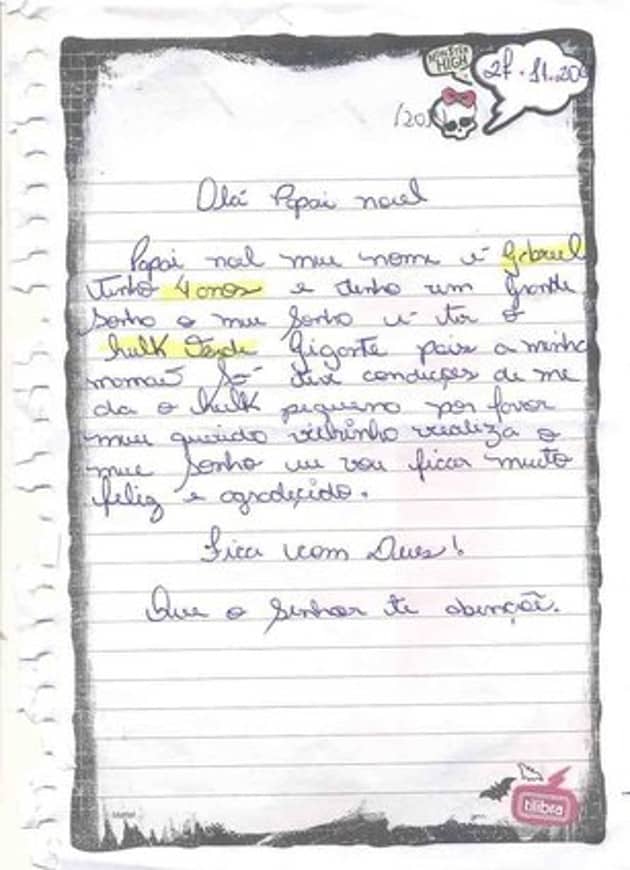 MONSTER HIGH
27.11.20
Olá Papai noel
Papai noel meu nome é Gabriel
tenho 4 anos e tenho um grande
sonho o meu sonho é ter o
hulk Verde Gigante pois a minha
mamãe só teve condições de me
da o hulk pequeno por favor
meu querido velhinho realiza o
meu sonho eu vou ficar muito
feliz e agradecido.
Fica com Deus!
Que o Senhor te abençoê.
tilibra